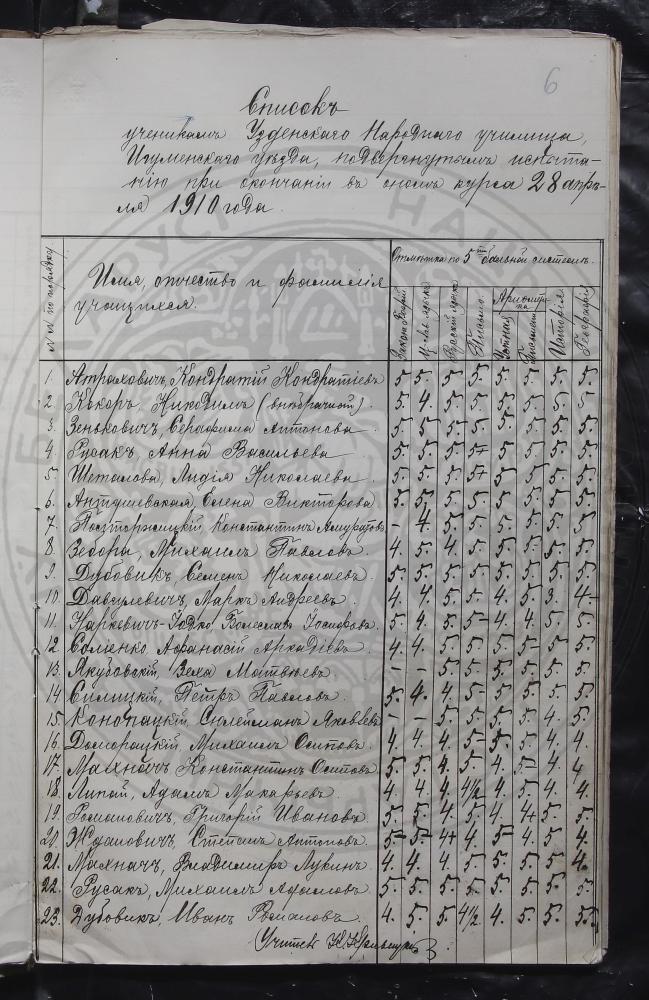 6
Списокъ
ученикамъ Узденскаго Народнаго училища,
Игуменскаго уѣзда, подвергнутымъ испыта-
нію при окончаніи въ ономъ курса 28 апрѣ-
ля 1910 года.
№№ по порядку
Имя, отчество и фамилія учащихся.
Отмѣтка по 5ти бальной системѣ.
Законъ Божій
Ц-слав. языкъ
Русскій языкъ
Письмо.
Ариѳмети-
ка
Устная
Письмен.
Исторія.
Географія
1. Атрахович, Кондратій Кондратіевъ 5. 5. 5. 5. 5. 5. 5. 5.
2. Кокоръ, Никодимъ (внѣбрачный). 5. 4. 5. 5. 5. 5. 5. 5
3. Зеньковичъ, Серафима Антонова 5. 5. 5. 5. 5. 5. 5. 5.
4. Русакъ, Анна Васильева 5. 5. 5. 5+ 5 5. 5. 5.
5. Лидія Николаева 5. 5. 5. 5+ 5. 5. 5. 5.
6. Елена Викторова 5. 5. 5. 5. 5. 5. 5. 5.
7. Константинъ – 4. 5. 5. 5. 5. 5. 5.
8. Зедора, Михаилъ Павловъ. 4. 5. 4. 5. 5. 5. 5. 5.
9. Дубовикъ, Семенъ Николаевъ. 5. 5. 5. 5. 5. 5. 5. 5.
10. Давсулевичъ, Маркъ Андреевъ. 4. 4. 5. 5. 4. 5. 3. 4.–
11. Наркевичъ-Іодко, Болеславъ Іосифовъ. 5. 4. 5. 5– 4. 4. 5. 5.
12. Соменко Афанасій Аркадіевъ 4. 4. 5. 5. 5. 5– 5. 5.
13. Якубовскій, Зеха Матвѣевъ. – – 5. 5. 5. 5. 5. 5.
14 Силицкій, Петръ Павловъ. 5. 4. 4. 5– 5. 5. 5. 5.
15. Конопацкій, Сюлейманъ Яковлевъ – – 5. 5. 5. 5. 4. 5.
16. Доморацкій, Михаилъ Осиповъ. 4. 4. 4. 5– 5. 5. 4. 4.
17. Махначъ Константинъ Осиповъ 5. 5. 4. 5. 4. 5– 4. 4
18. Липай, Адамъ Макарьевъ. 4. 4. 4. 4½ 4. 5. 4. 4.
19. Романовичъ, Григорій Ивановъ. 5. 5. 4. 5. 4. 4+ 5. 5.
20. Ждановичъ, Степанъ Антоновъ. 5– 5. 4+ 4. 5 4. 5. 4.
21. Махначъ, Владимиръ Лукинъ 4. 4. 4. 5. 5. 5. 5. 4.
22. Русакъ, Михаилъ 5. 5. 5. 5. 5. 5. 5. 5.
23. Дубовикъ, Иванъ Романовъ. 4. 5. 5. 4½ 4. 5. 5. 5.
Учитель